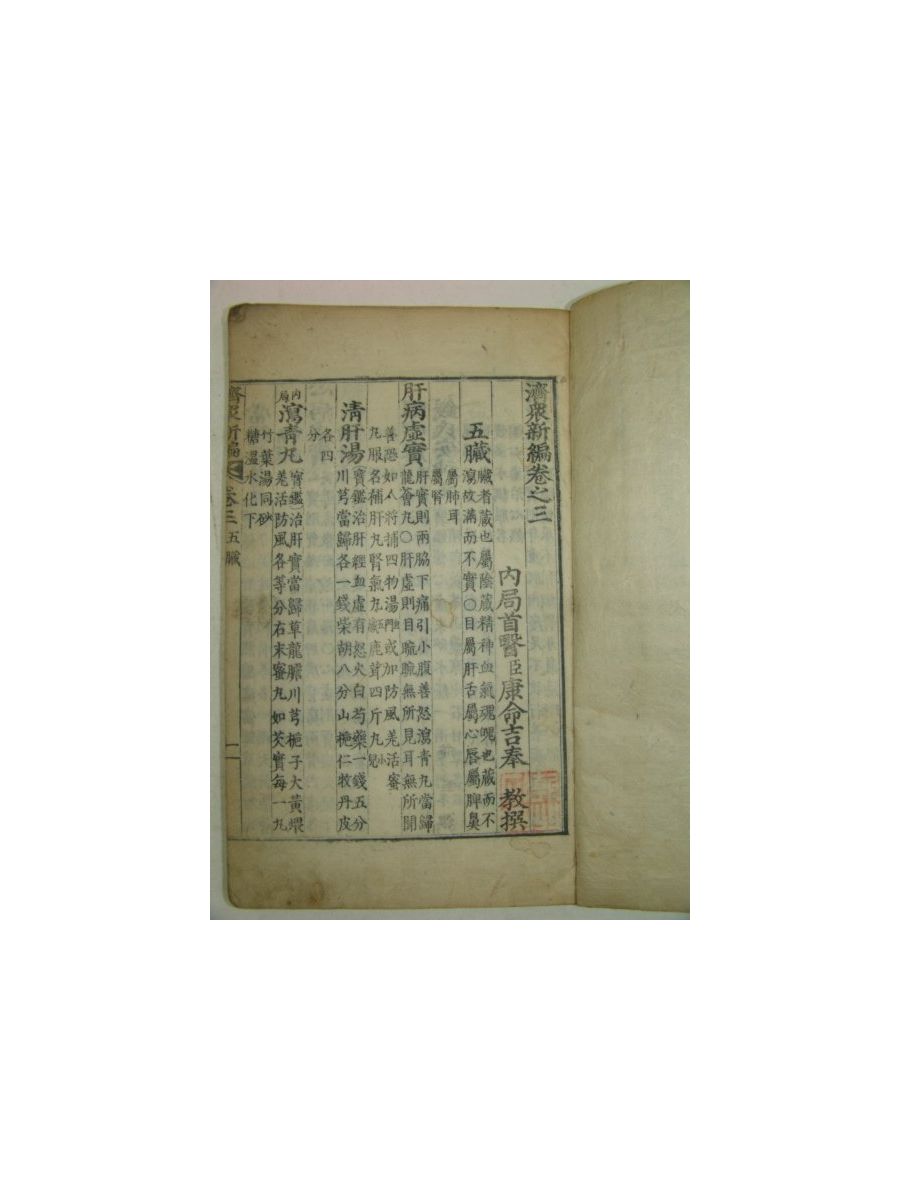 濟衆新編卷之三
內局首醫臣康命吉奉 教撰
五臟
臟者藏也屬陰藏精神血氣魂魄也藏而不
瀉故滿而不實〇目屬肝舌屬心唇屬脾鼻
屬肺耳
屬腎
肝病虛實
肝實則兩脇下痛引小腹善怒瀉青丸當歸
龍薈丸〇肝虛則目䀮䀮無所見耳無所聞
善恐如人將捕四物湯或加防風羌活蜜
丸服名補肝丸腎氣丸鹿茸四斤丸
清肝湯
寶鑑治肝經血虛有怒火白芍藥一錢五分
川芎當歸各一錢柴胡八分山梔仁牧丹皮
各四
分
內局
瀉青丸
寶鑑治肝實當歸草龍膽川芎梔子大黃煨
羌活防風各等分右末蜜丸如芡實每一丸
竹葉湯同砂
糖溫水化下
濟衆新編 卷三 五臟 一